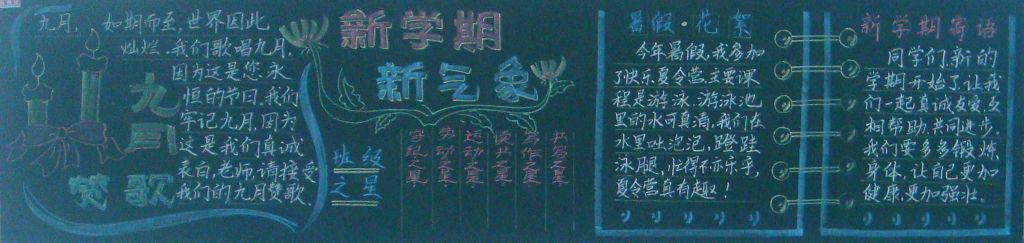 九月, 如期而至,世界因此
灿烂.我们歌唱九月,
因为这是您永
恒的节日.我们
牢记九月.因为
这是我们真诚
表白,老师,请接受
我们的九月赞歌.
九月
赞歌
新学期
新气象
班级
之星
守纪之星
劳动之星
运动之星
读书之星
写作之星
书写之星
暑假·花絮
今年暑假,我参加
了快乐夏令营主要课
程是游泳.游泳池
里的水可真清,我们在
水里吐泡泡,蹬蹬
泳腿,忙得不亦乐乎,
夏令营真有趣!
新学期寄语
同学们,新的
学期开始了,让我
们一起真诚友爱,互
相帮助,共同进步.
我们要多多锻炼
身体,让自己更加
健康,更加强壮.